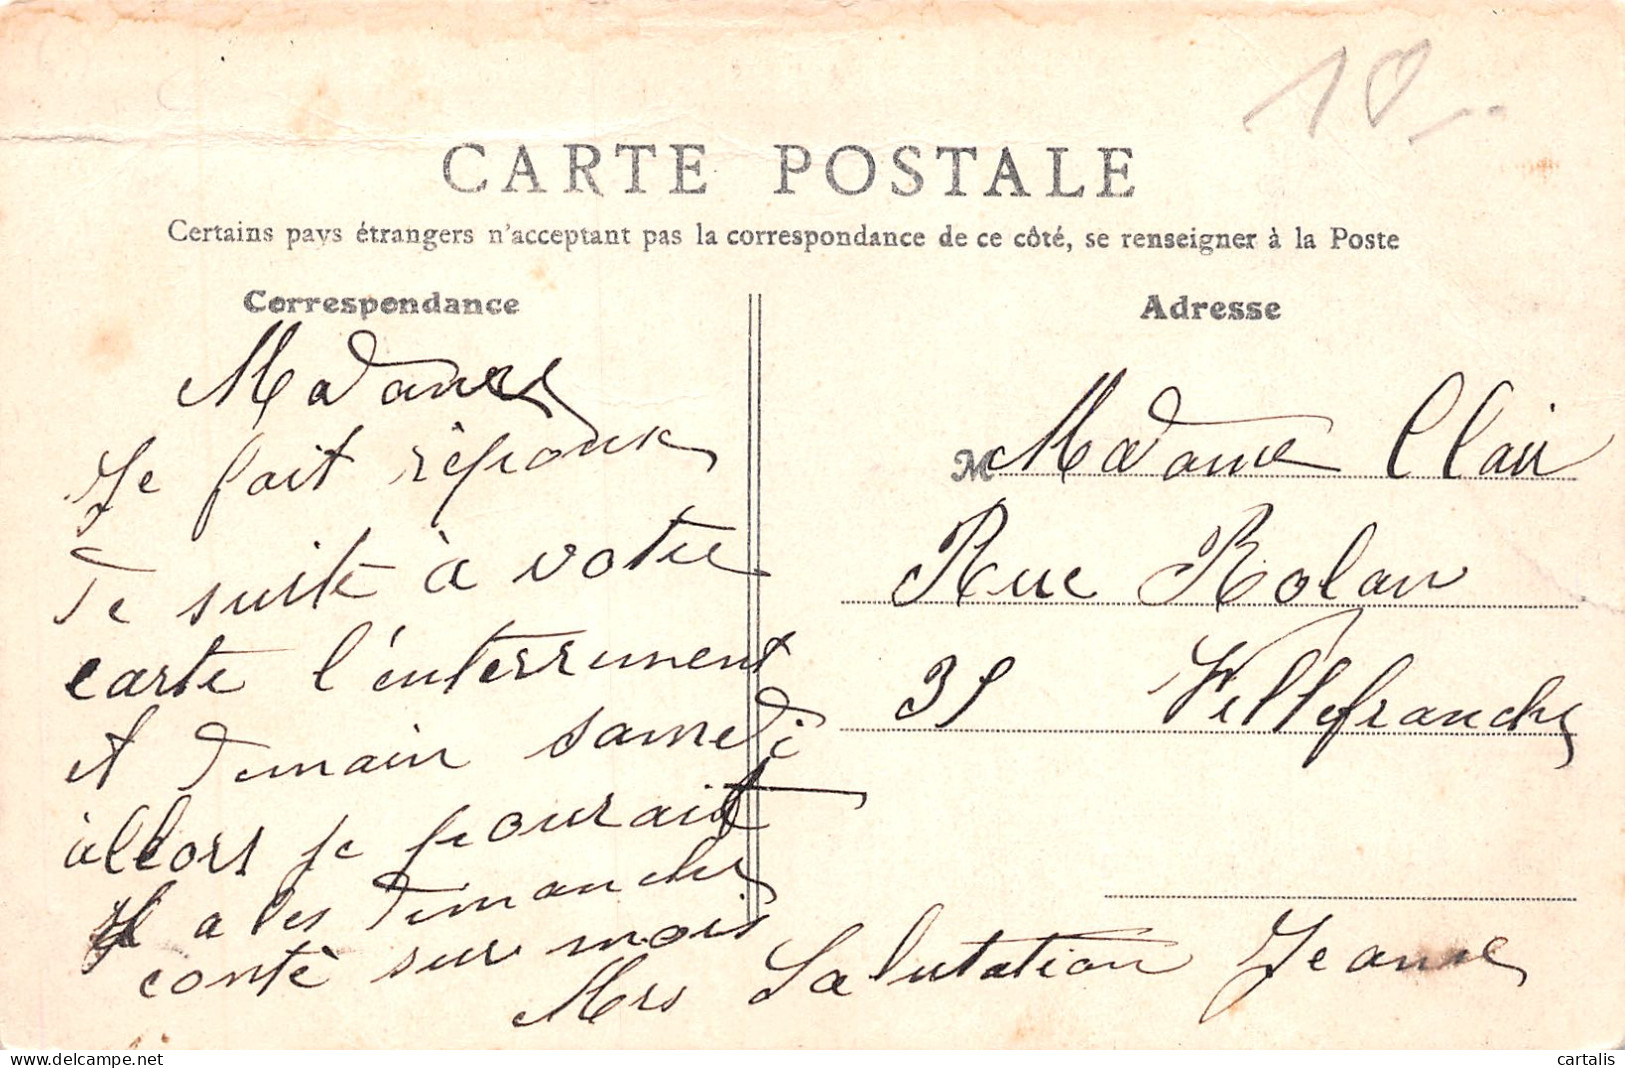 10
CARTE POSTALE
Certains pays étrangers n'acceptant pas la correspondance de ce côté, se renseigner à la Poste
Correspondance
Madame
Je fait réponse
de suite à votre
carte l'enterrement
et demain samedi
àllors je pourait
a les dimanche
contè sur mois
Mrs Salutation Jeanne
Adresse
M Madame Clair
Rue Rolan
35 Villefranche
cartalis
delcampe.net